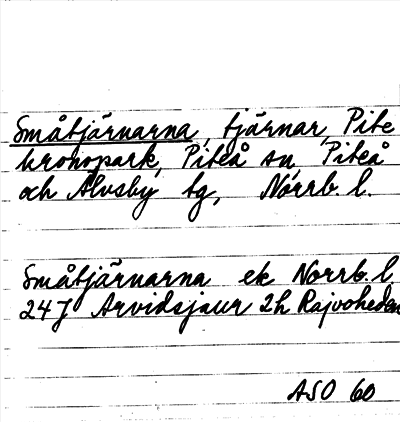 Småtjärnarna, tjärnar, Pite
kronopark, Piteå sn, Piteå
och Älvsby tg, Norrb. l.
Småtjärnarna ek Norrb. l
24 J Arvidsjaur 2h Rajvoheden
ASO 60